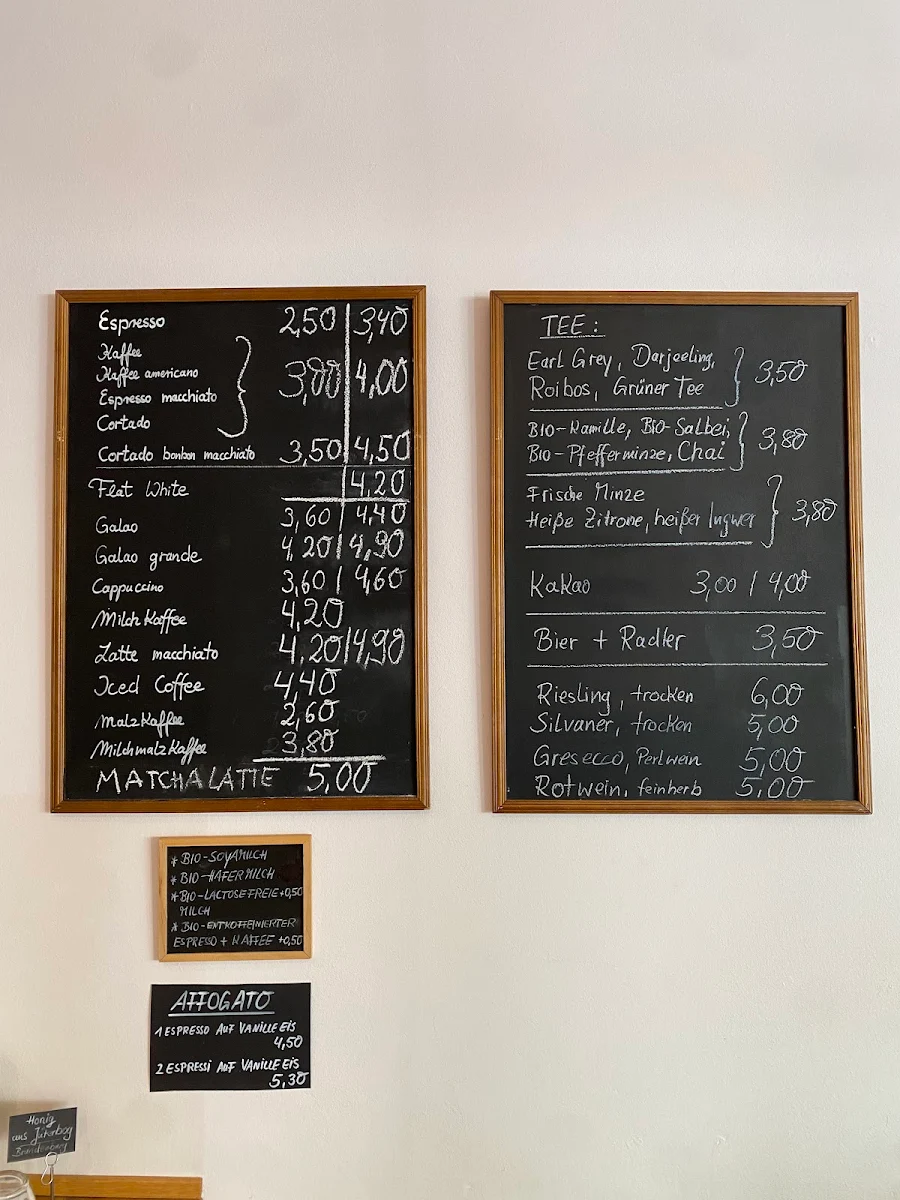 Espresso 2,50 3,40
Kaffee
Kaffee americano 3,00 4,00
Espresso macchiato
Cortado
Cortado bonbon macchiato 3,50 4,50
Flat White 4,20
Galao 3,60 4,40
Galao grande 4,20 4,90
Cappuccino 3,60 4,60
Milch Kaffee 4,20
Latte macchiato 4,20 4,90
Iced Coffee 4,40
Malzkaffee 2,60
Milchmalzkaffee 3,80
MATCHA LATTE 5,00
TEE:
Earl Grey, Darjeeling,
Roibos, Grüner Tee 3,50
BIO-Kamille, BIO-Salbei,
BIO-Pfefferminze, Chai 3,80
Frische Minze
Heiße Zitrone, heißer Ingwer 3,80
Kakao 3,00 / 4,00
Bier + Radler 3,50
Riesling, trocken 6,00
Silvaner, trocken 5,00
Gresecco, Perlwein 5,00
Rotwein, feinherb 5,00
* BIO-SOYAMILCH
* BIO-HAFERMILCH
* BIO-LACTOSEFREIE +0,50
MILCH
* BIO-ENTKOFFEINIERTER
ESPRESSO + KAFFEE +0,50
AFFOGATO
1 ESPRESSO AUF VANILLE EIS
4,50
2 ESPRESSI AUF VANILLE EIS
5,30
Honig
aus Jüterbog
Brandenburg